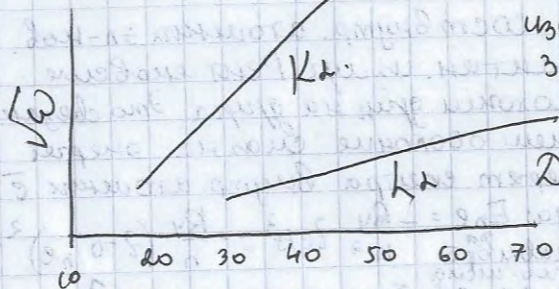 √ω
Kα
Lα
из
3
2
10 20 30 40 50 60 70